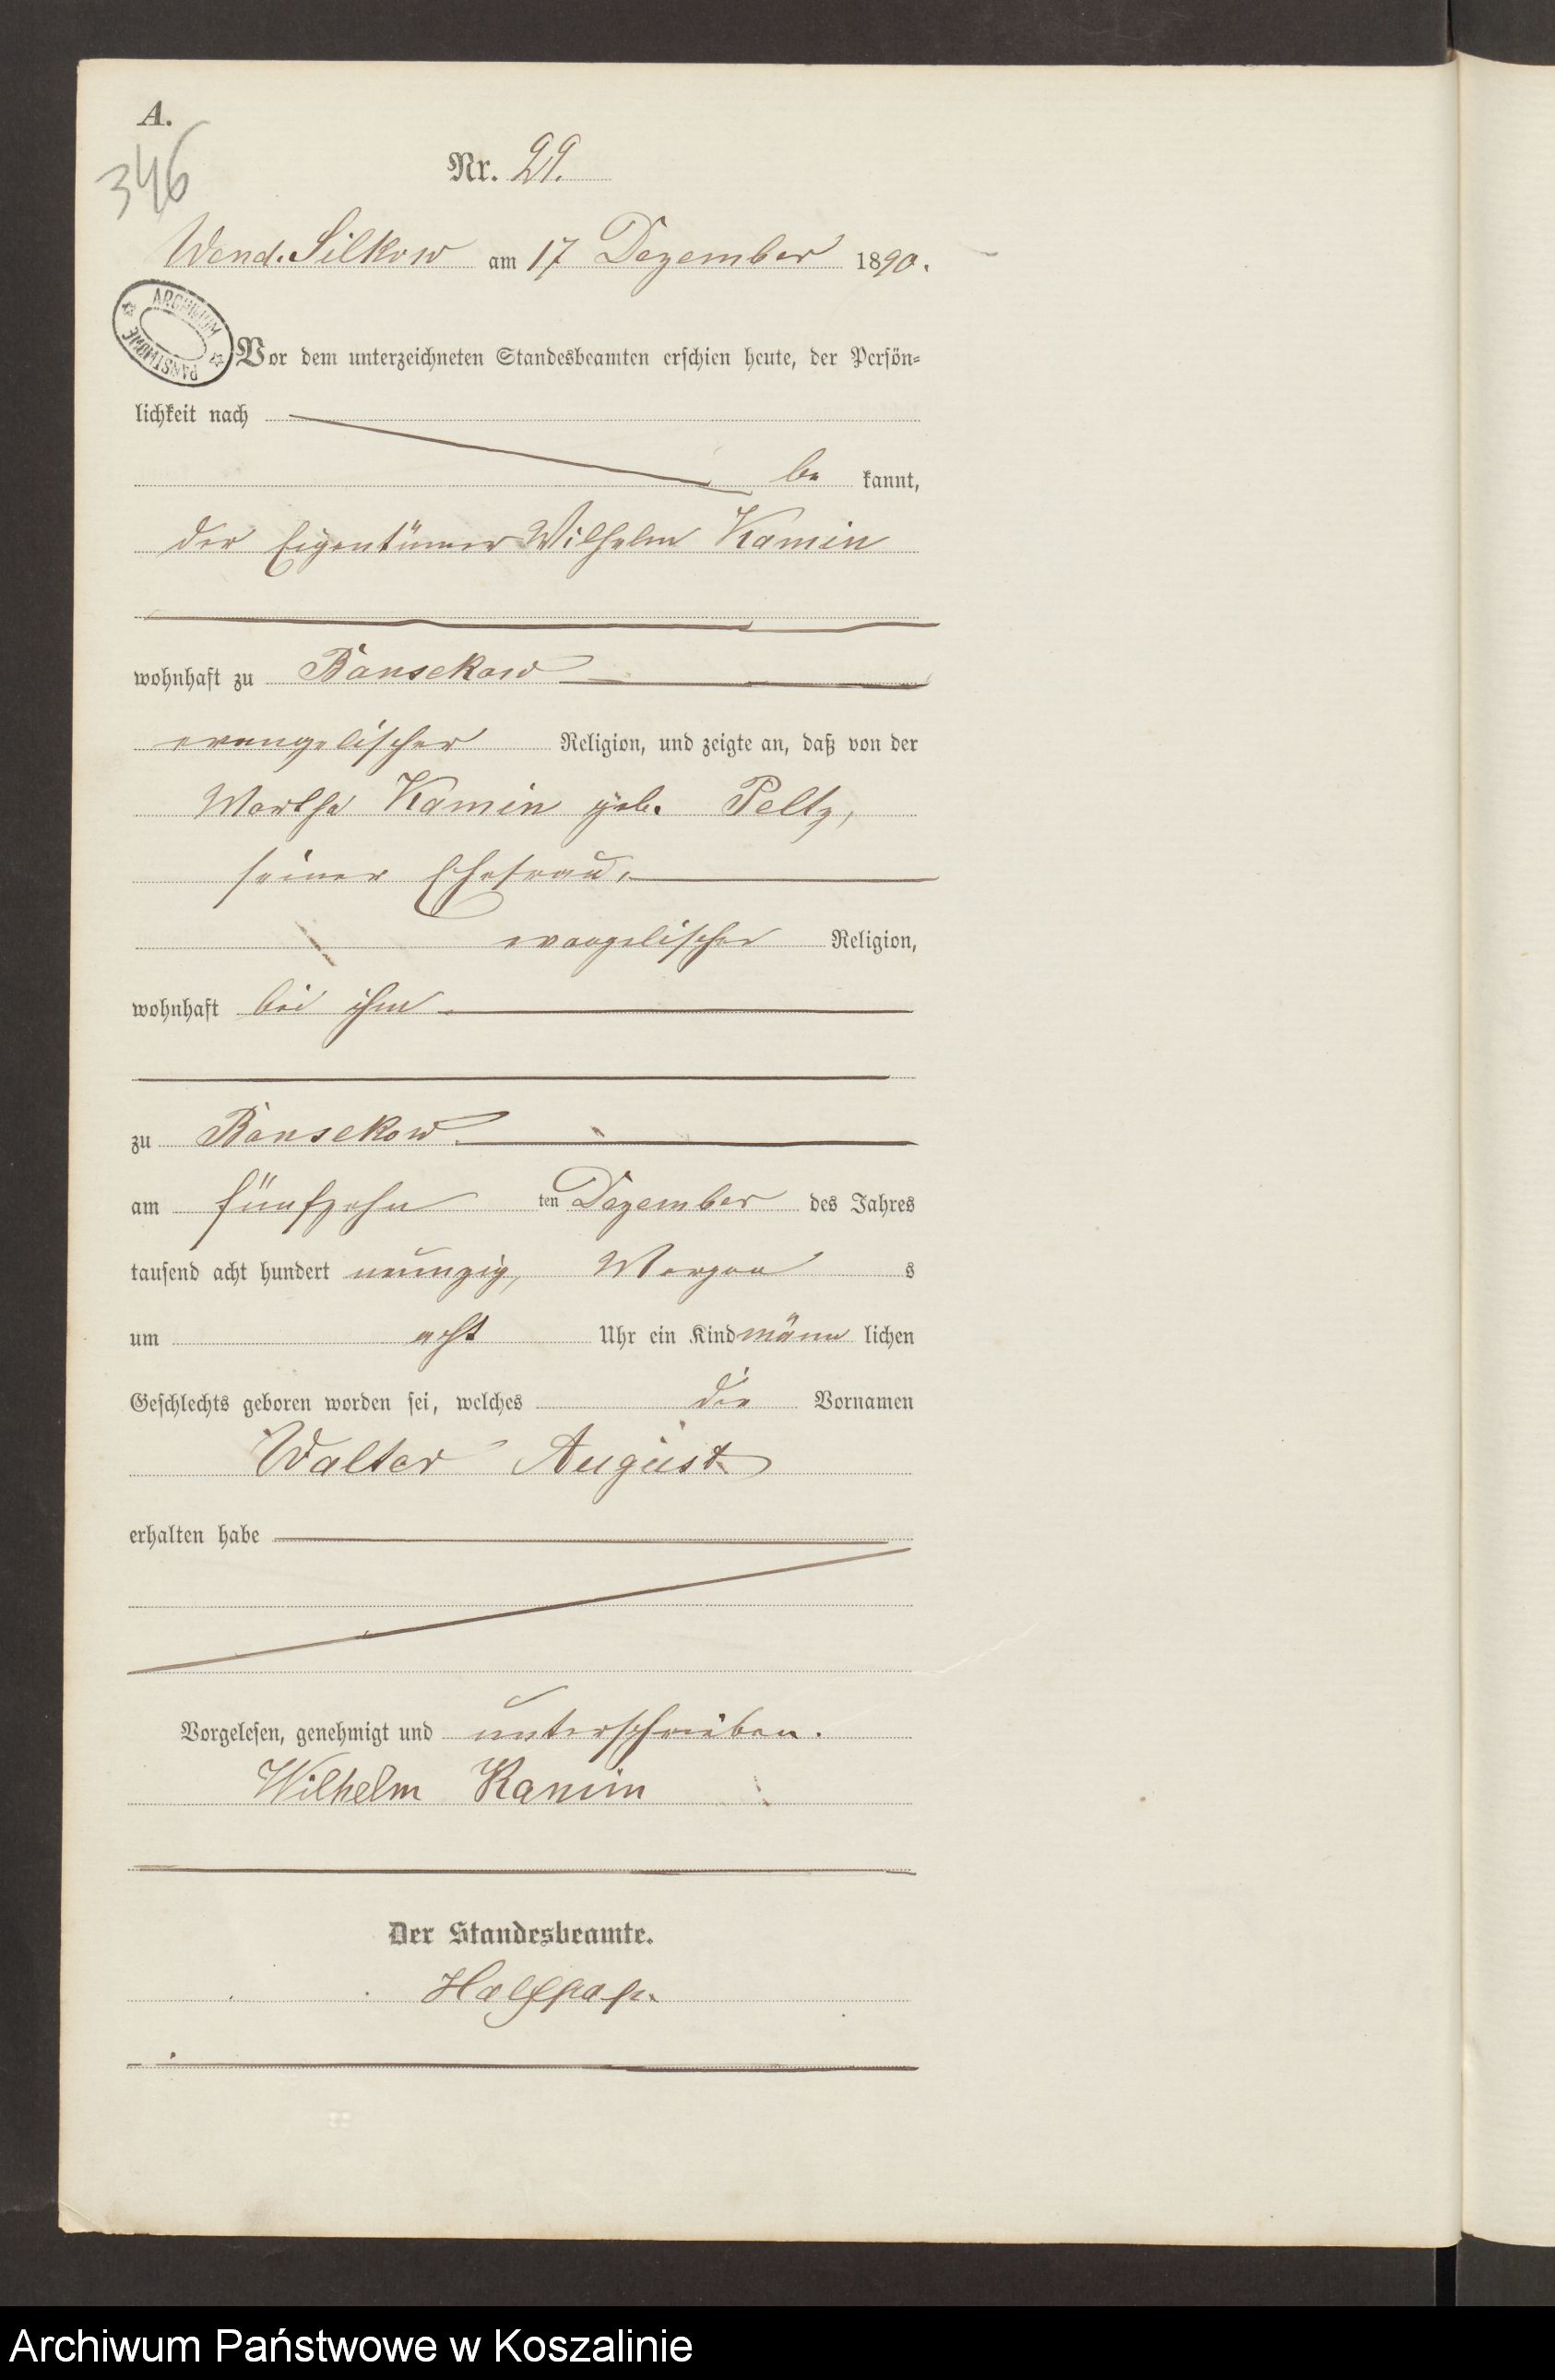 A.
346
Nr. 29.
Wend. Silkow am 17 Dezember 1890.
ARCHIWUM PAŃSTWOWE
Vor dem unterzeichneten Standesbeamten erschien heute, der Persön-
lichkeit nach
be kannt,
der Eigentümer Wilhelm Kamin
wohnhaft zu Bansekow
evangelischer Religion, und zeigte an, daß von der
Martha Kamin geb. Peltz,
seiner Ehefrau,
evangelischer Religion,
wohnhaft bei ihm
zu Bansekow
am fünfzehn ten Dezember des Jahres
tausend acht hundert neunzig, Morgen s
um acht Uhr ein Kind männ lichen
Geschlechts geboren worden sei, welches die Vornamen
Walter August
erhalten habe
Vorgelesen, genehmigt und unterschrieben.
Wilhelm Kamin
Der Standesbeamte.
Archiwum Państwowe w Koszalinie